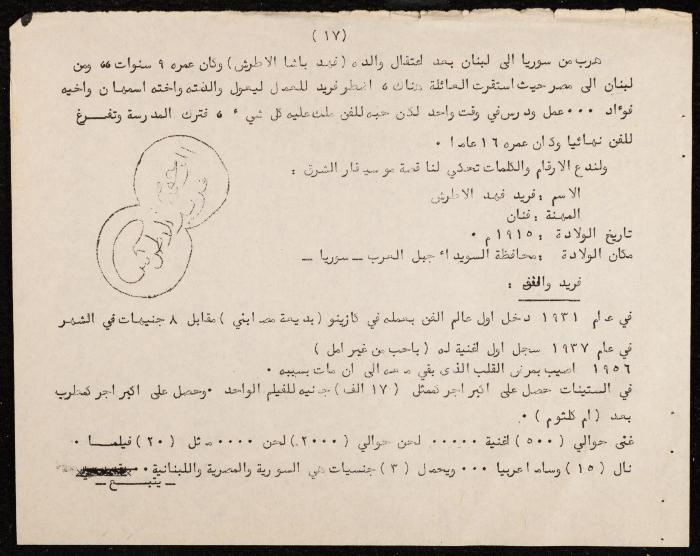 (١٧)
هرب من سوريا الى لبنان بعد اعتقال والده (فهد باشا الاطرش) وكان عمره ٩ سنوات ٠٠ ومن
لبنان الى مصر حيث استقرت العائلة هناك ، اضطر فريد للعمل ليعول والدته واخته اسمهان واخيه
فوءاد ٠٠٠ عمل ودرس في وقت واحد لكن حبه للفن ملك عليه كل شيء ، فترك المدرسة وتفرغ
للفن نهائيا وكان عمره ١٦ عاما ٠
ولندع الارقام والكلمات تحكي لنا قصة موسيقار الشرق :
الاسم : فريد فهد الاطرش
المهنة : فنان
تاريخ الولادة : ١٩١٥ م ٠
مكان الولادة : محافظة السويداء جبل العرب ــ سوريا ــ
فريد والفن :
في عام ١٩٣١ دخل اول عالم الفن بعمله في كازينو (بديعة مصابني) مقابل ٨ جنيهات في الشهر
في عام ١٩٣٧ سجل اول اغنية له (ياحب من غير امل)
١٩٥٦ اصيب بمرض القلب الذي بقي معه الى ان مات بسببه ٠
في الستينات حصل على اكبر اجر كممثل (١٧ الف) جنيه للفيلم الواحد ٠ وحصل على اكبر اجر كمطرب
بعد (ام كلثوم) ٠
غنى حوالي (٥٠٠) اغنية ٠٠٠٠٠ لحن حوالي (٢٠٠٠) لحن ٠٠٠٠ مثل (٢٠) فيلمـا ٠
نال (١٥) وساما عربيا ٠٠٠ ويحمل (٣) جنسيات هي السورية والمصرية واللبنانية ٠٠
ــ يتبـــع ــ
فريد الاطرش